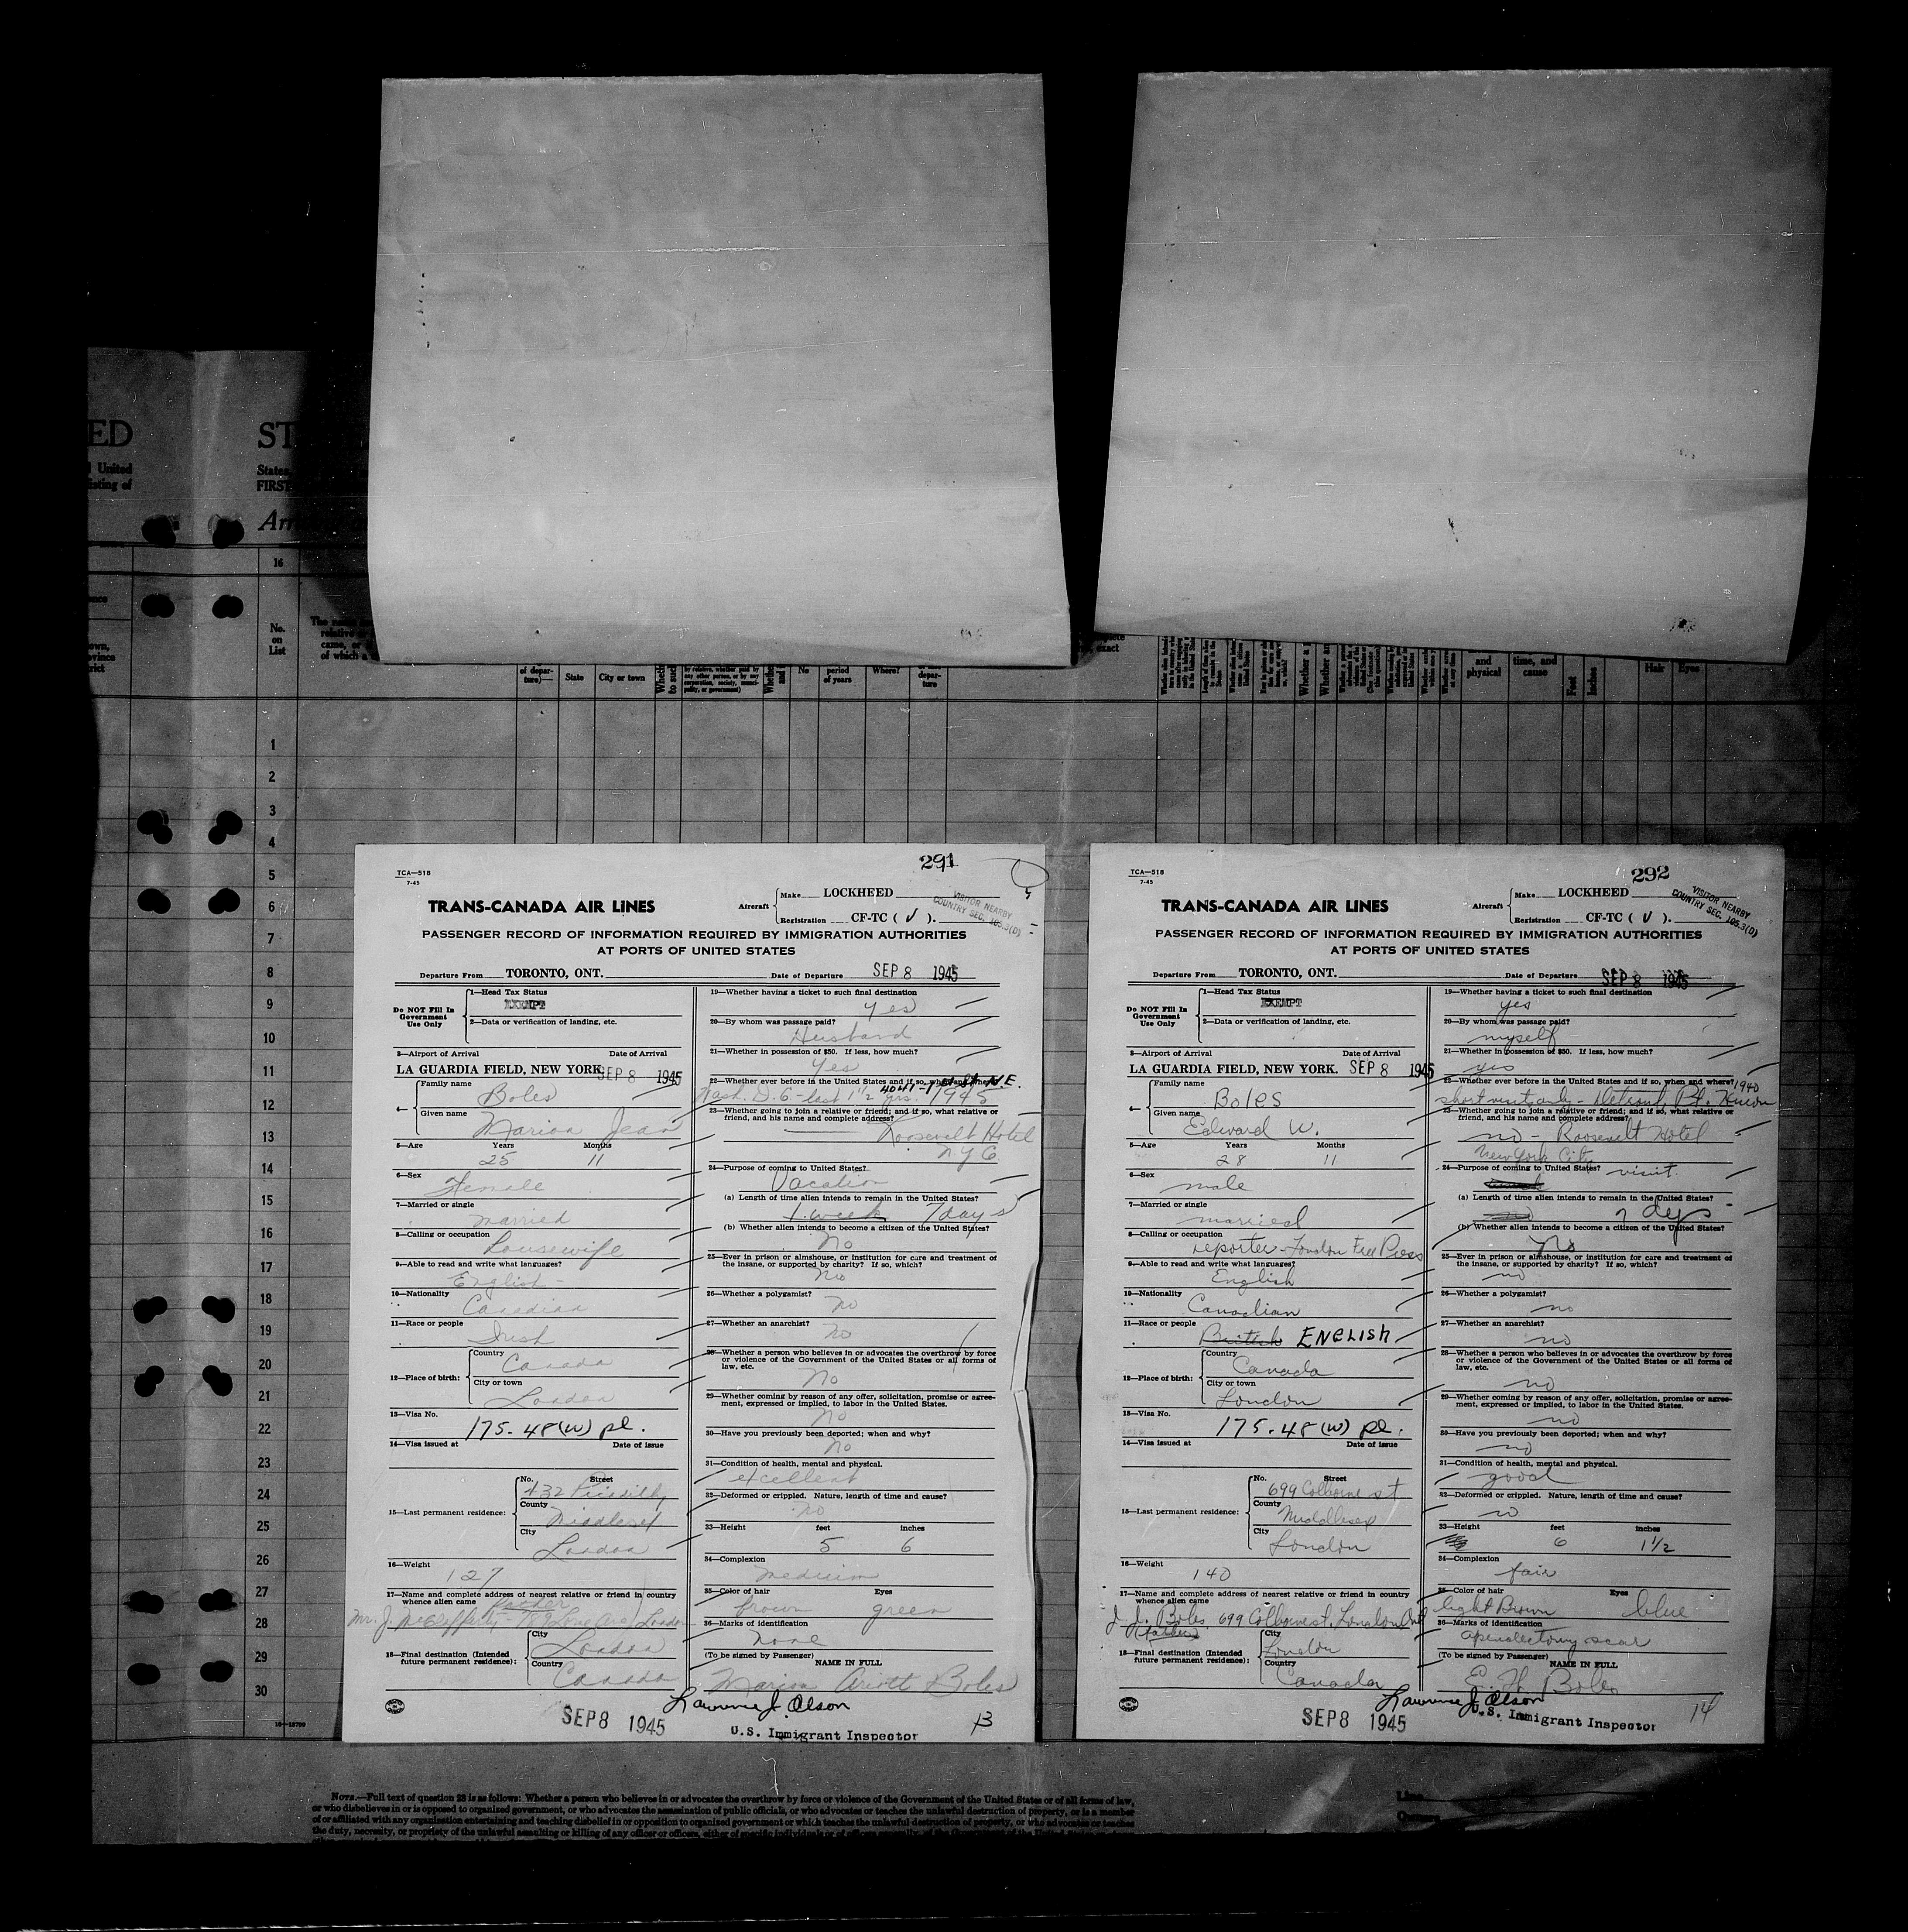 ED
ST
l United
isting of
States,
FIRST
Arr
16
No.
on
List
own,
vince
trict
The name
relative
came, or
of which a
of depar-
ture)—
State
City or town
Whether
to such
by relative, whether paid by
any other person, or by any
corporation, society, munici-
pality, or government)
No
period
of years
Where?
depar-
ture
exact
and
physical
time, and
cause
Feet
Inches
Hair
Eyes
1
2
3
4
5
6
7
8
9
10
11
12
13
14
15
16
17
18
19
20
21
22
23
24
25
26
27
28
29
30
291
TCA—518
7-45
TRANS-CANADA AIR LINES
Aircraft
Make LOCKHEED
Registration CF-TC ( V ).
VISITOR NEARBY
COUNTRY SEC. 105.3(D)
PASSENGER RECORD OF INFORMATION REQUIRED BY IMMIGRATION AUTHORITIES
AT PORTS OF UNITED STATES
Departure From TORONTO, ONT. Date of Departure SEP 8 1945
Do NOT Fill In
Government
Use Only
1—Head Tax Status
EXEMPT
2—Data or verification of landing, etc.
3—Airport of Arrival Date of Arrival
LA GUARDIA FIELD, NEW YORK SEP 8 1945
4—
Family name
Boles
Given name
Marion Jean
5—Age Years Months
25 11
6—Sex
Female
7—Married or single
married
8—Calling or occupation
Housewife
9—Able to read and write what languages?
English -
10—Nationality
Canadian
11—Race or people
Irish
12—Place of birth:
Country
Canada
City or town
London
13—Visa No.
175.48(W) pl.
14—Visa issued at Date of issue
15—Last permanent residence:
No. Street
432 Picadilly
County
Middlesex
City
London
16—Weight
127
17—Name and complete address of nearest relative or friend in country
whence alien came
Father
Mr. J. McClafferty London
18—Final destination (Intended
future permanent residence):
City
London
Country
Canada
19—Whether having a ticket to such final destination
Yes
20—By whom was passage paid?
Husband
21—Whether in possession of $50. If less, how much?
Yes
22—Whether ever before in the United States and if so, when and where?
4041 - 1st St. N.E.
Wash. D.C. - last 1½ yrs. 1945
23—Whether going to join a relative or friend; and if so, what relative or
friend, and his name and complete address?
Roosevelt Hotel
NYC
24—Purpose of coming to United States?
Vacation
(a) Length of time alien intends to remain in the United States?
1 week 7 days
(b) Whether alien intends to become a citizen of the United States?
No
25—Ever in prison or almshouse, or institution for care and treatment of
the insane, or supported by charity? If so, which?
No
26—Whether a polygamist?
no
27—Whether an anarchist?
no
28—Whether a person who believes in or advocates the overthrow by force
or violence of the Government of the United States or all forms of
law, etc.
No
29—Whether coming by reason of any offer, solicitation, promise or agree-
ment, expressed or implied, to labor in the United States.
No
30—Have you previously been deported; when and why?
No
31—Condition of health, mental and physical.
excellent
32—Deformed or crippled. Nature, length of time and cause?
no
33—Height feet inches
5 6
34—Complexion
medium
35—Color of hair Eyes
brown green
36—Marks of identification
none
(To be signed by Passenger)
NAME IN FULL
Marion Boles
Lawrence J. Olson
SEP 8 1945
U.S. Immigrant Inspector
13
292
TCA—518
7-45
TRANS-CANADA AIR LINES
Aircraft
Make LOCKHEED
Registration CF-TC ( V ).
VISITOR NEARBY
COUNTRY SEC. 105.3(D)
PASSENGER RECORD OF INFORMATION REQUIRED BY IMMIGRATION AUTHORITIES
AT PORTS OF UNITED STATES
Departure From TORONTO, ONT. Date of Departure SEP 8 1945
Do NOT Fill In
Government
Use Only
1—Head Tax Status
EXEMPT
2—Data or verification of landing, etc.
3—Airport of Arrival Date of Arrival
LA GUARDIA FIELD, NEW YORK. SEP 8 1945
4—
Family name
Boles
Given name
Edward W.
5—Age Years Months
28 11
6—Sex
male
7—Married or single
married
8—Calling or occupation
reporter - London Free Press
9—Able to read and write what languages?
English
10—Nationality
Canadian
11—Race or people
British ENGLISH
12—Place of birth:
Country
Canada
City or town
London
13—Visa No.
175.48(W) pl.
14—Visa issued at Date of issue
15—Last permanent residence:
No. Street
699 Colborne st
County
Middlesex
City
London
16—Weight
140
17—Name and complete address of nearest relative or friend in country
whence alien came
J. J. Boles 699 Colborne st, London Ont
(father)
18—Final destination (Intended
future permanent residence):
City
London
Country
Canada
19—Whether having a ticket to such final destination
yes
20—By whom was passage paid?
myself
21—Whether in possession of $50. If less, how much?
yes
22—Whether ever before in the United States and if so, when and where?
1940
short visit only - Detroit, Pt. Huron
23—Whether going to join a relative or friend; and if so, what relative or
friend, and his name and complete address?
no - Roosevelt Hotel
New York City
24—Purpose of coming to United States?
visit.
(a) Length of time alien intends to remain in the United States?
7 dys
(b) Whether alien intends to become a citizen of the United States?
No
25—Ever in prison or almshouse, or institution for care and treatment of
the insane, or supported by charity? If so, which?
no
26—Whether a polygamist?
no
27—Whether an anarchist?
no
28—Whether a person who believes in or advocates the overthrow by force
or violence of the Government of the United States or all forms of
law, etc.
no
29—Whether coming by reason of any offer, solicitation, promise or agree-
ment, expressed or implied, to labor in the United States.
no
30—Have you previously been deported; when and why?
no
31—Condition of health, mental and physical.
good
32—Deformed or crippled. Nature, length of time and cause?
no
33—Height feet inches
6 1½
34—Complexion
fair
35—Color of hair Eyes
light Brown blue
36—Marks of identification
apendectomy scar
(To be signed by Passenger)
NAME IN FULL
E. W. Boles
Lawrence J. Olson
SEP 8 1945
U.S. Immigrant Inspector
14
NOTE.—Full text of question 28 is as follows: Whether a person who believes in or advocates the overthrow by force or violence of the Government of the United States or of all forms of law,
or who disbelieves in or is opposed to organized government, or who advocates the assassination of public officials, or who advocates or teaches the unlawful destruction of property, or is a member
of or affiliated with any organization entertaining and teaching disbelief in or opposition to organized government or which teaches the unlawful destruction of property, or who advocates or teaches
the duty, necessity, or propriety of the unlawful assaulting or killing of any officer or officers, either of specific individuals or of officers generally, of the Government of the United States
Line